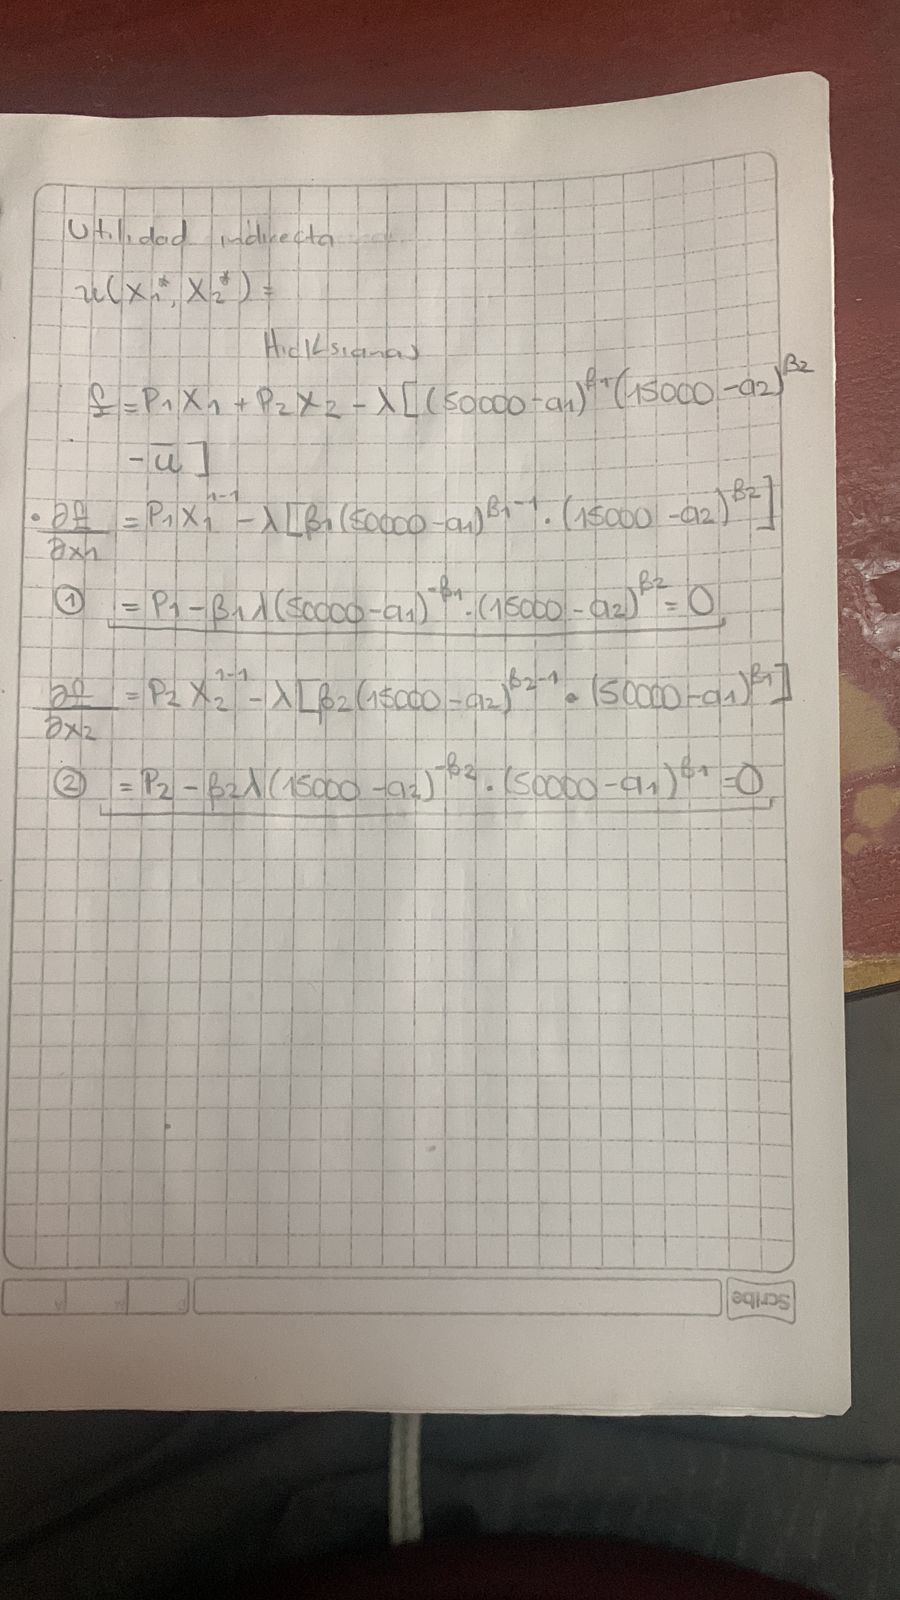 Utilidad indirecta
u(x₁*, x₂*) =
Hicksianas
ℒ = P₁X₁ + P₂X₂ - λ[(50000-a₁)^β₁ (15000-a₂)^β₂
- ū]
• ∂ℒ/∂x₁ = P₁X₁^1-1 - λ[β₁(50000-a₁)^β₁-1 · (15000-a₂)^β₂]
① = P₁ - β₁λ(50000-a₁)^-β₁ · (15000-a₂)^β₂ = 0
∂ℒ/∂x₂ = P₂X₂^1-1 - λ[β₂(15000-a₂)^β₂-1 · (50000-a₁)^β₁]
② = P₂ - β₂λ(15000-a₂)^-β₂ · (50000-a₁)^β₁ = 0
Scribe